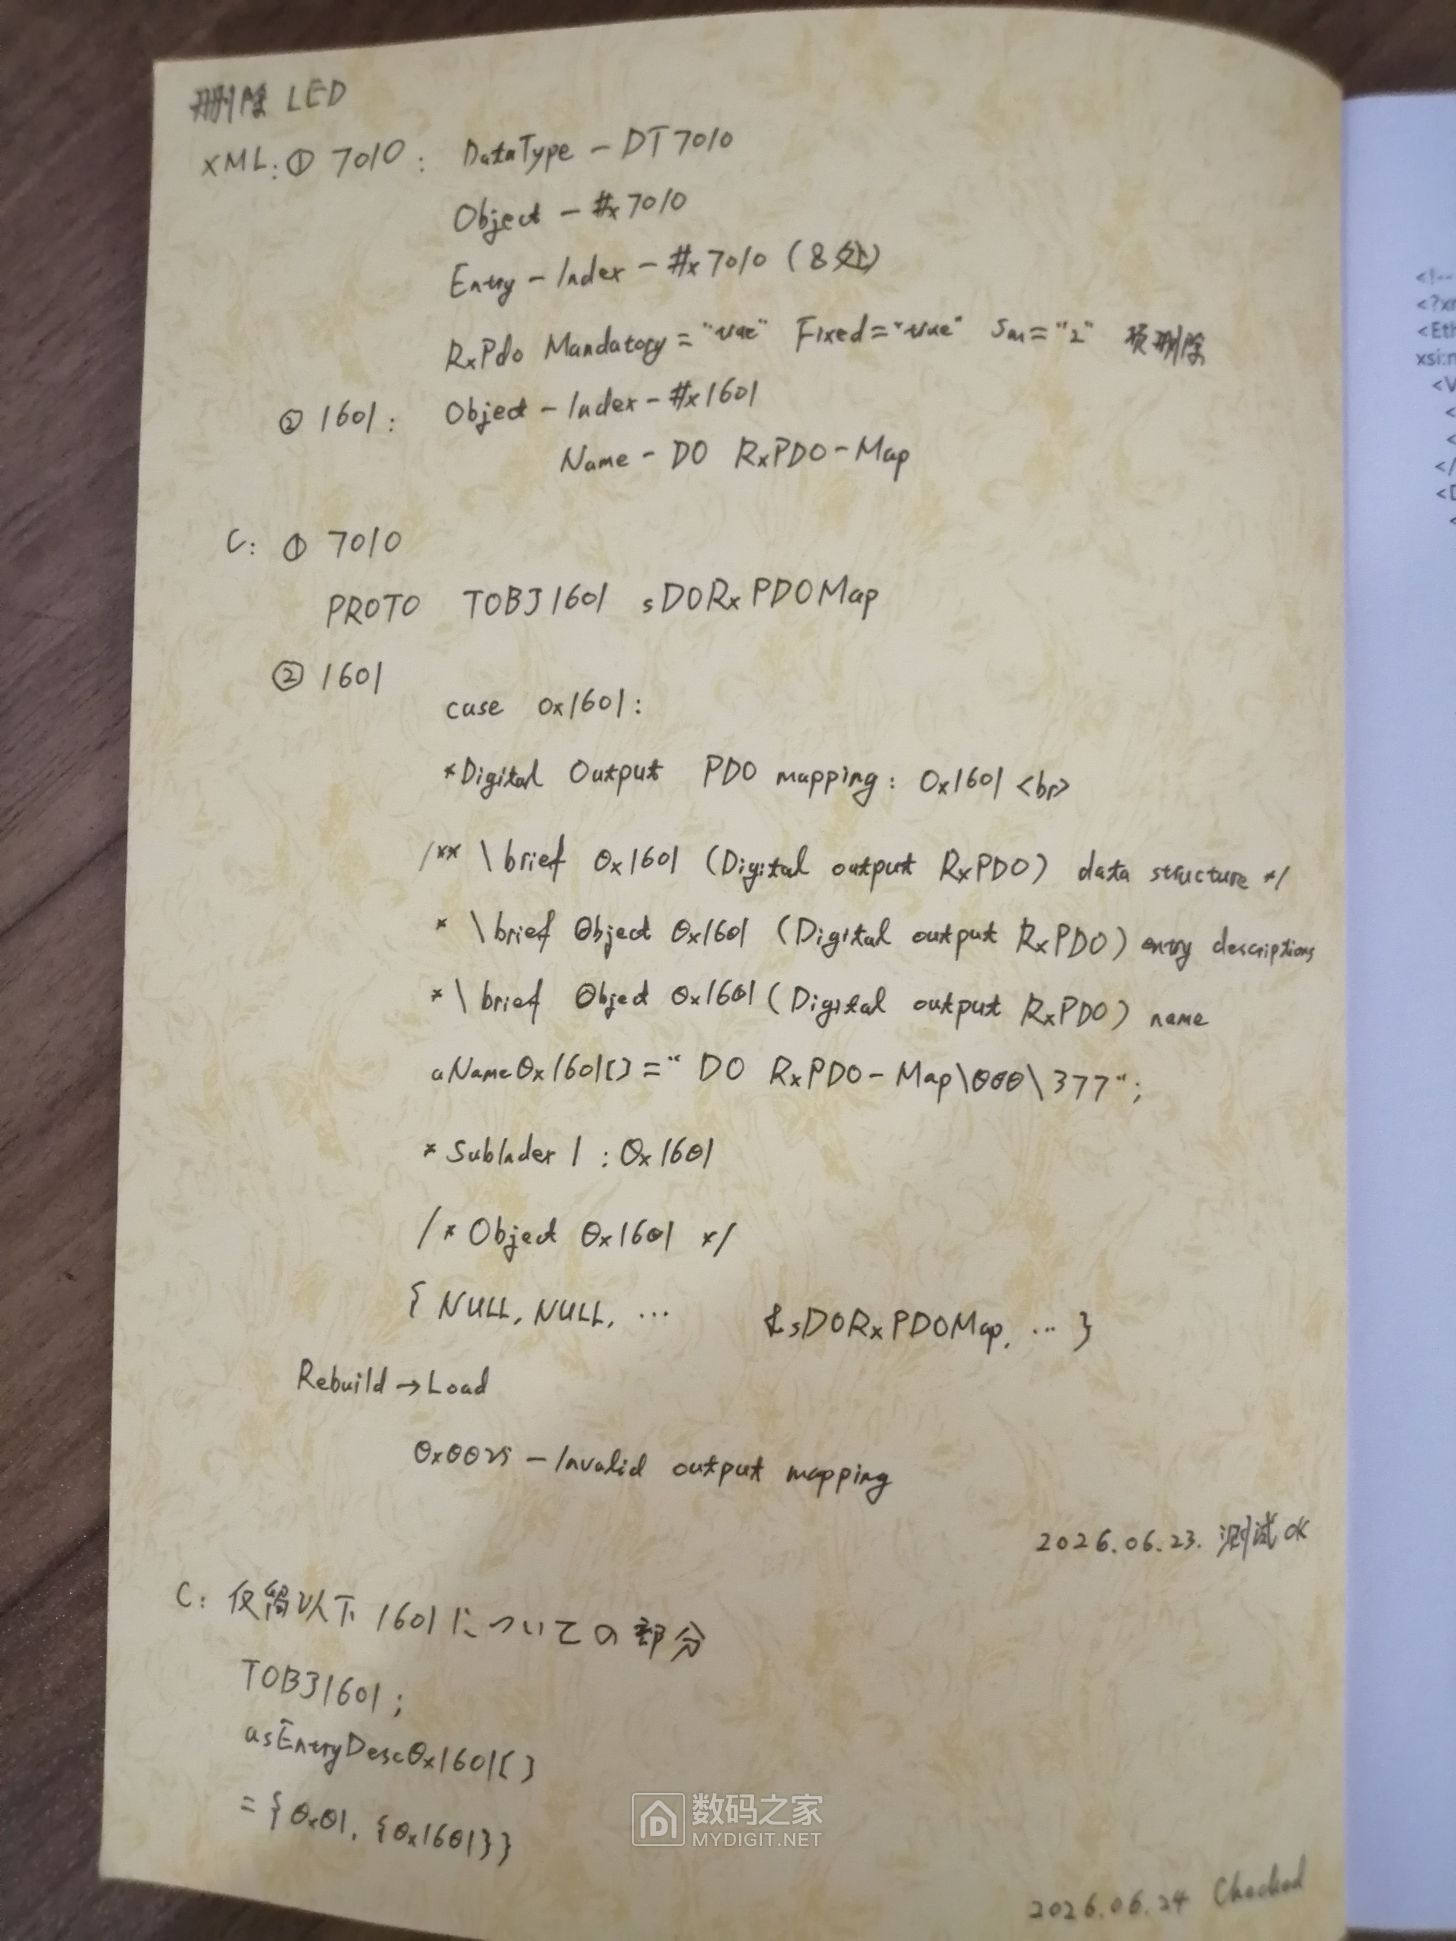 删除 LED
XML: ① 7010: DataType - DT7010
Object - #x7010
Entry - Index - #x7010 (8处)
RxPdo Mandatory="true" Fixed="true" Sm="2" 项删除
② 1601: Object - Index - #x1601
Name - DO RxPDO-Map
C: ① 7010
PROTO TOBJ1601 sDORxPDOMap
② 1601
case 0x1601:
*Digital Output PDO mapping: 0x1601<br>
/** \brief 0x1601 (Digital output RxPDO) data structure */
* \brief Object 0x1601 (Digital output RxPDO) entry descriptions
* \brief Object 0x1601 (Digital output RxPDO) name
aName0x1601[] = "DO RxPDO-Map\000\377";
* SubIndex 1 : 0x1601
/* Object 0x1601 */
{ NULL, NULL, ... &sDORxPDOMap, ... }
Rebuild → Load
0x0025 - Invalid output mapping
2026.06.23. 测试OK
C: 仅留以下 1601についての部分
TOBJ1601;
asEntryDesc0x1601[]
= {0x01, {0x1601}}
2026.06.24 Checked
数码之家
MYDIGIT.NET
<!--
<?xm
<Eth
xsi:n
<V
<
<
</
<D
<